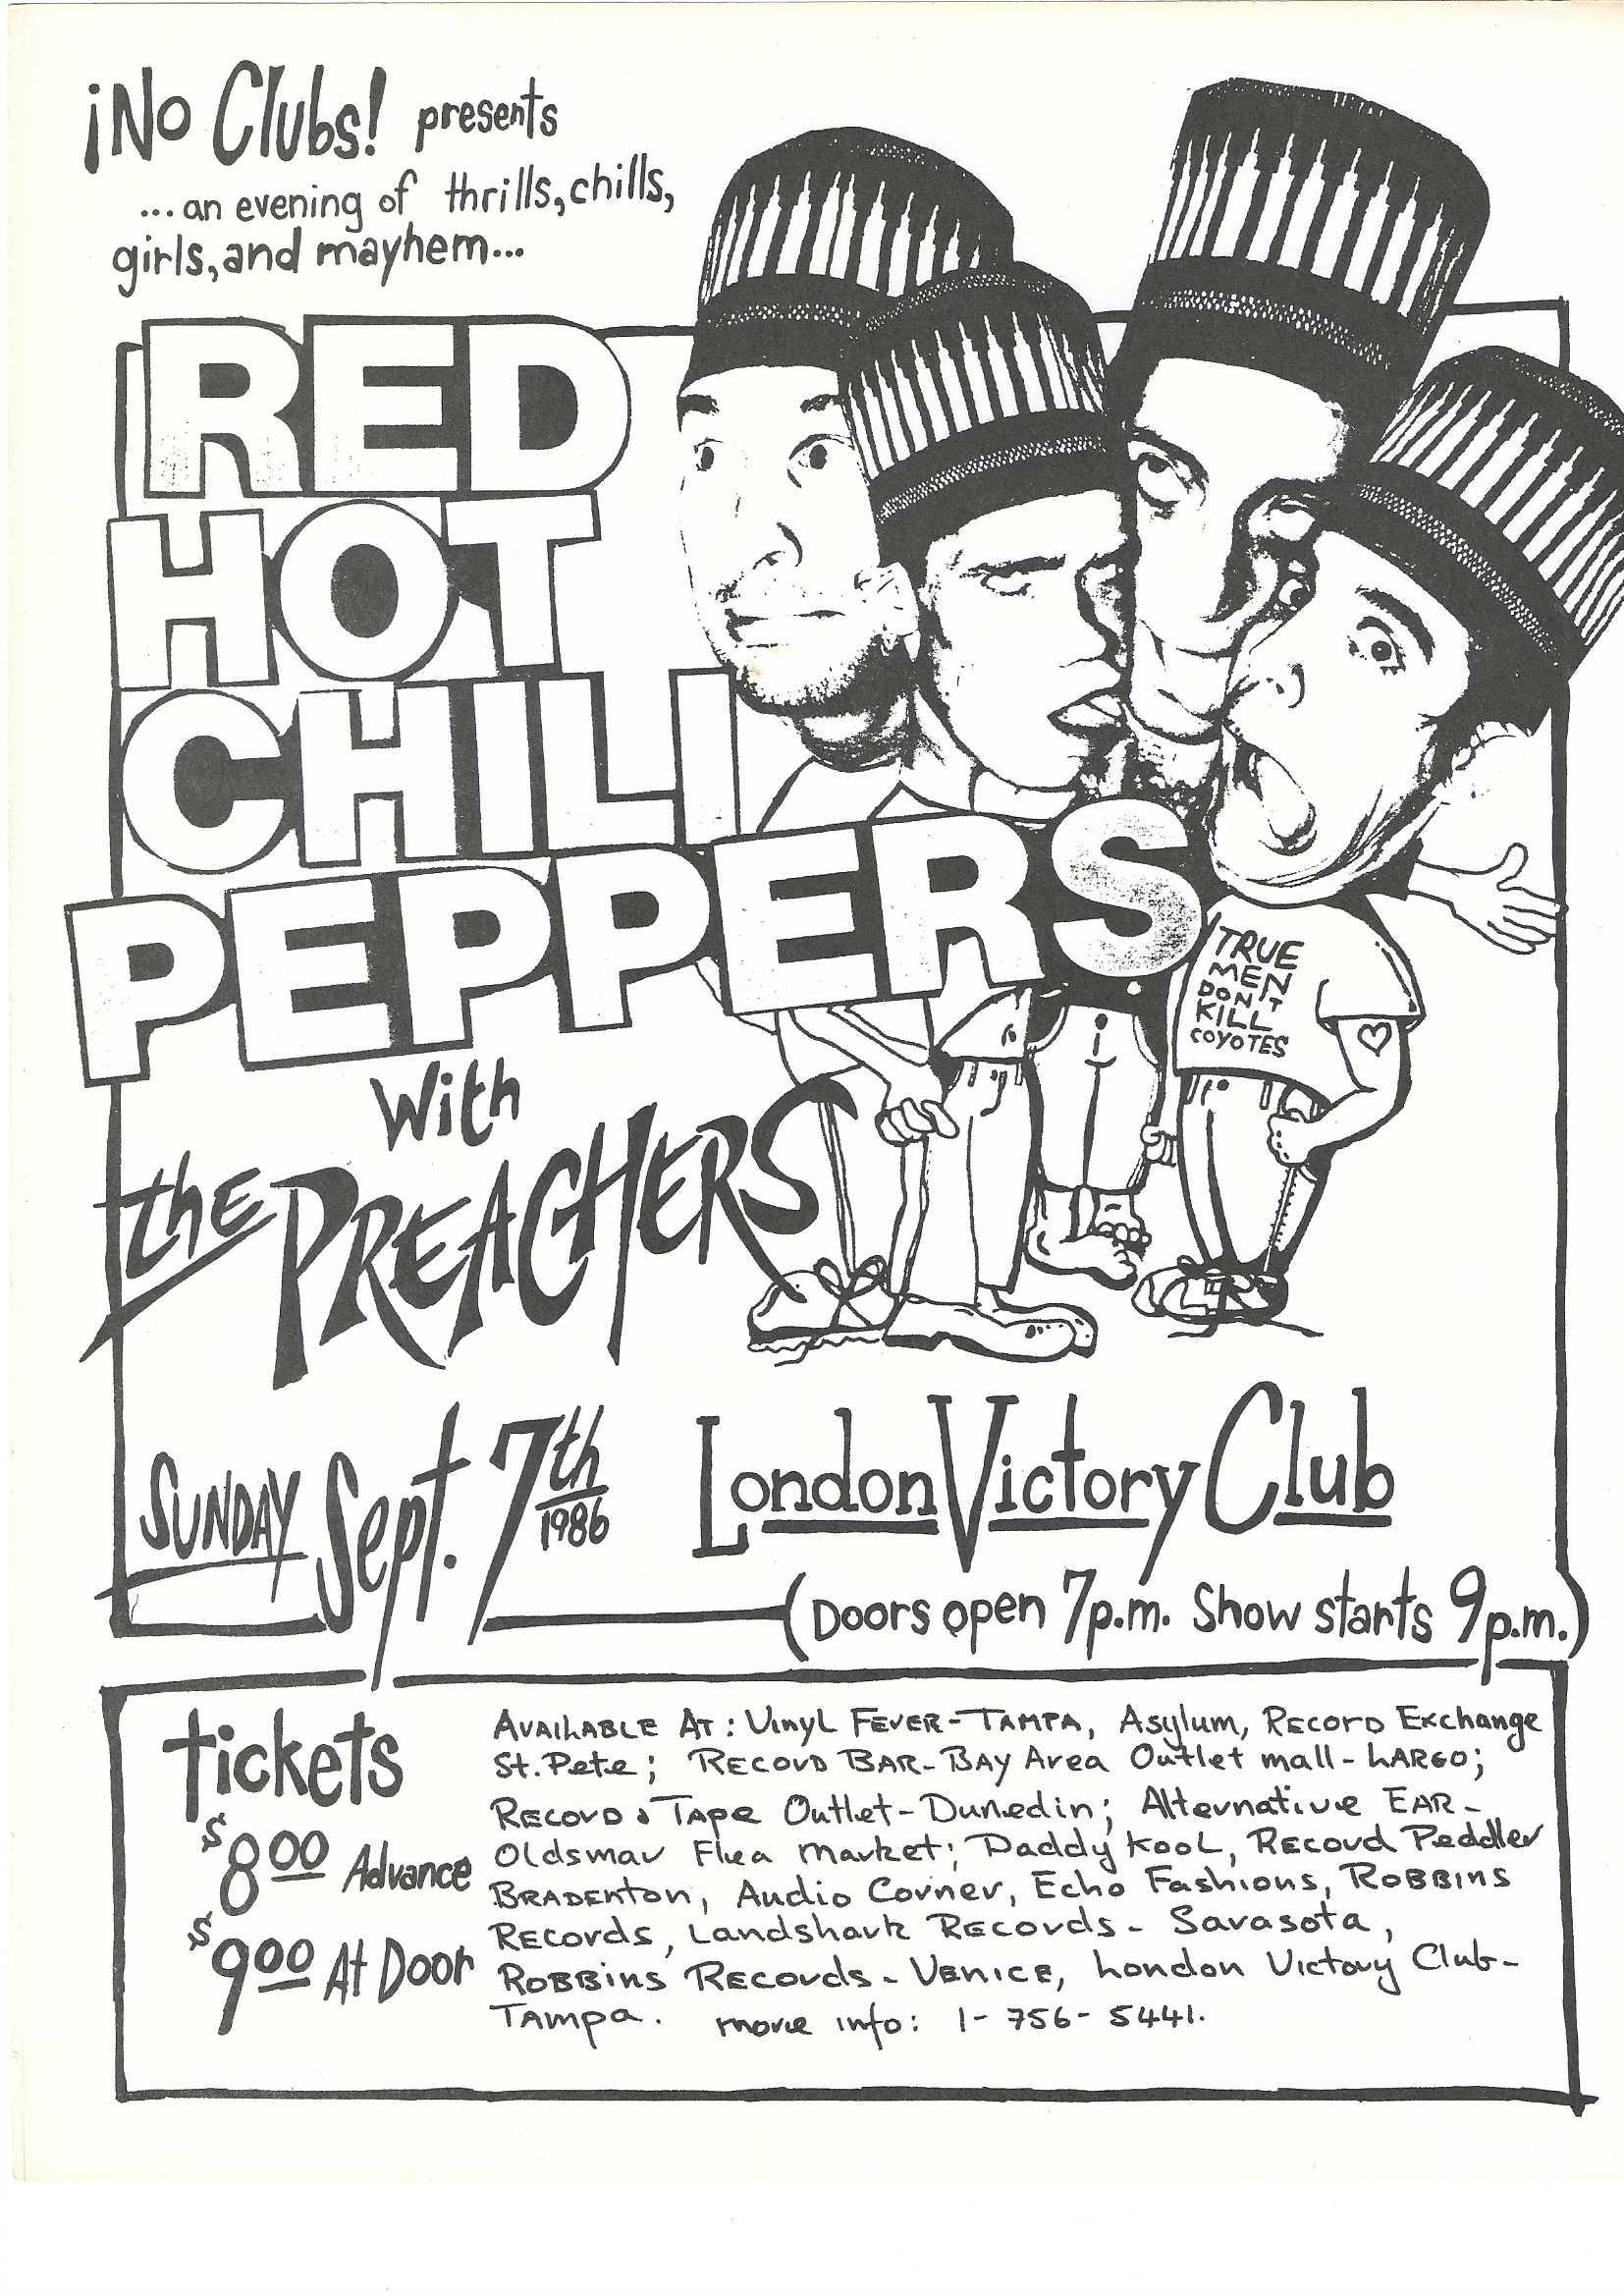 ¡No Clubs! presents
...an evening of thrills, chills,
girls, and mayhem...
RED
HOT
CHILI
PEPPERS
TRUE
MEN
DON'T
KILL
COYOTES
With
the PREACHERS
SUNDAY Sept. 7th 1986
London Victory Club
(Doors open 7p.m. Show starts 9p.m.)
tickets
$8.00 Advance
$9.00 At Door
AVAILABLE AT: Vinyl FEVER-TAMPA, Asylum, Record Exchange
St. Pete; RECORD BAR-BAY Area Outlet mall-LARGO;
RECORD & TAPE Outlet-Dunedin; Alternative EAR-
Oldsmar Flea Market; Daddy Kool, RECORD Peddler
BRADENTON, Audio Corner, Echo Fashions, ROBBINS
RECORDS, Landshark RECORDS- Sarasota,
ROBBINS RECORDS- VENICE, London Victory Club-
TAMPA. more info: 1-756-5441.